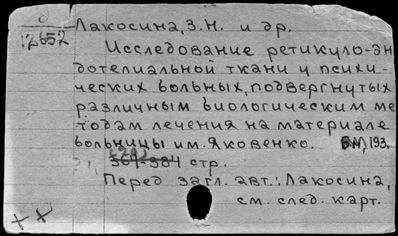 12652
Лакосина, З.Н. и др.
Исследование ретикуло-эн
дотелиальной ткани у психи-
ческих больных, подвергнутых
различным биологическим ме
тодам лечения на материале
больницы им. Яковенко.
193.
564-584 стр.
Перед загл. авт.: Лакосина,
см. след. карт.